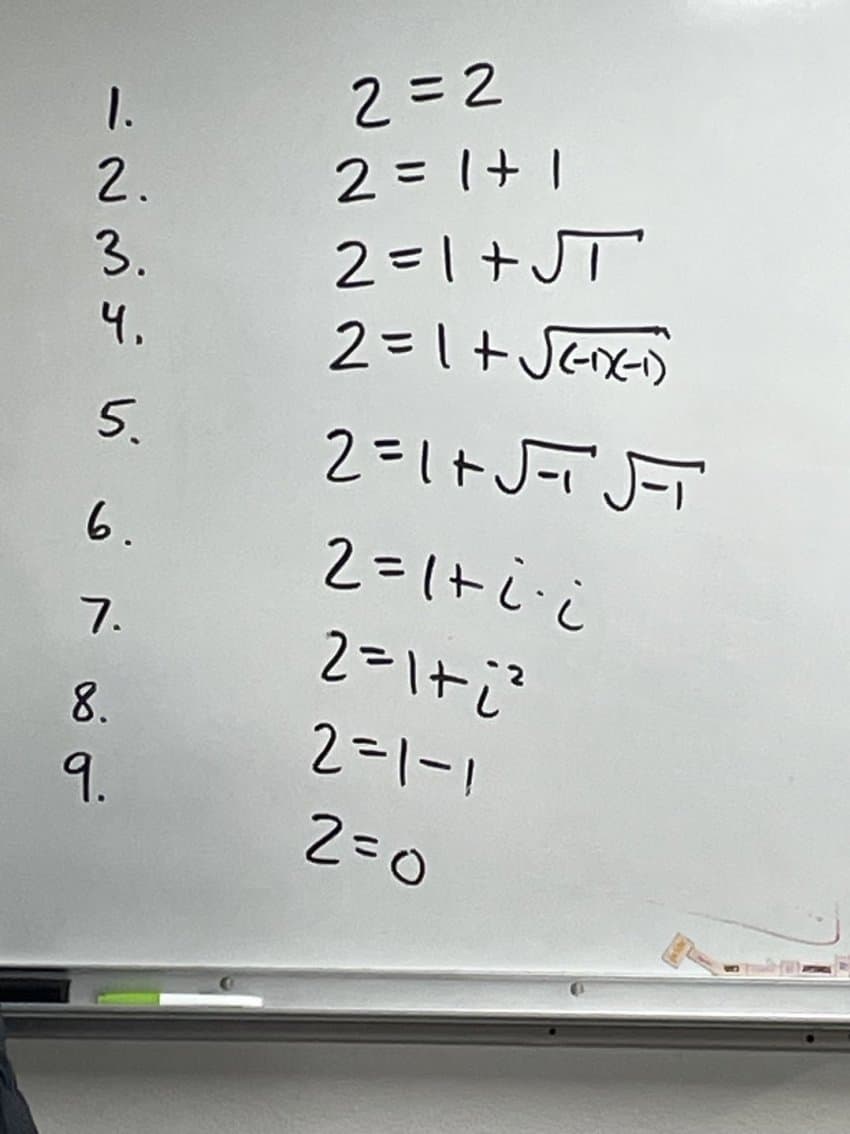 1. 2 = 2
2. 2 = 1 + 1
3. 2 = 1 + √1
4. 2 = 1 + √(-1)(-1)
5. 2 = 1 + √-1 √-1
6. 2 = 1 + i · i
7. 2 = 1 + i²
8. 2 = 1 - 1
9. 2 = 0